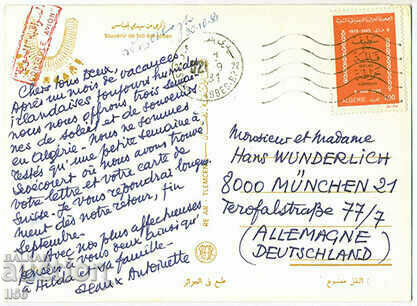 Souvenir de Sidi Bel Abbès
PAR AVION
Chers tous deux,
Après un mois de vacances
irlandaises toujours humides,
nous nous offrons trois semai-
nes de soleil et de souvenirs
en Algérie. Nous ne sommes
restés qu'une petite semaine à
où nous avons trouvé
votre lettre et votre carte de
Suisse. Je vous répondrai longue
ment dès notre retour, fin
Septembre.
Avec nos plus affectueuses
pensées à vous deux ainsi qu'
à Hilda et sa famille
Antoinette
12 9
ALGERIE
Monsieur et Madame
Hans WUNDERLICH
8000 MÜNCHEN 21
Terofalstraße 77/7
(ALLEMAGNE
DEUTSCHLAND)
طبع في الجزائر
النقل ممنوع
Балкан
1156